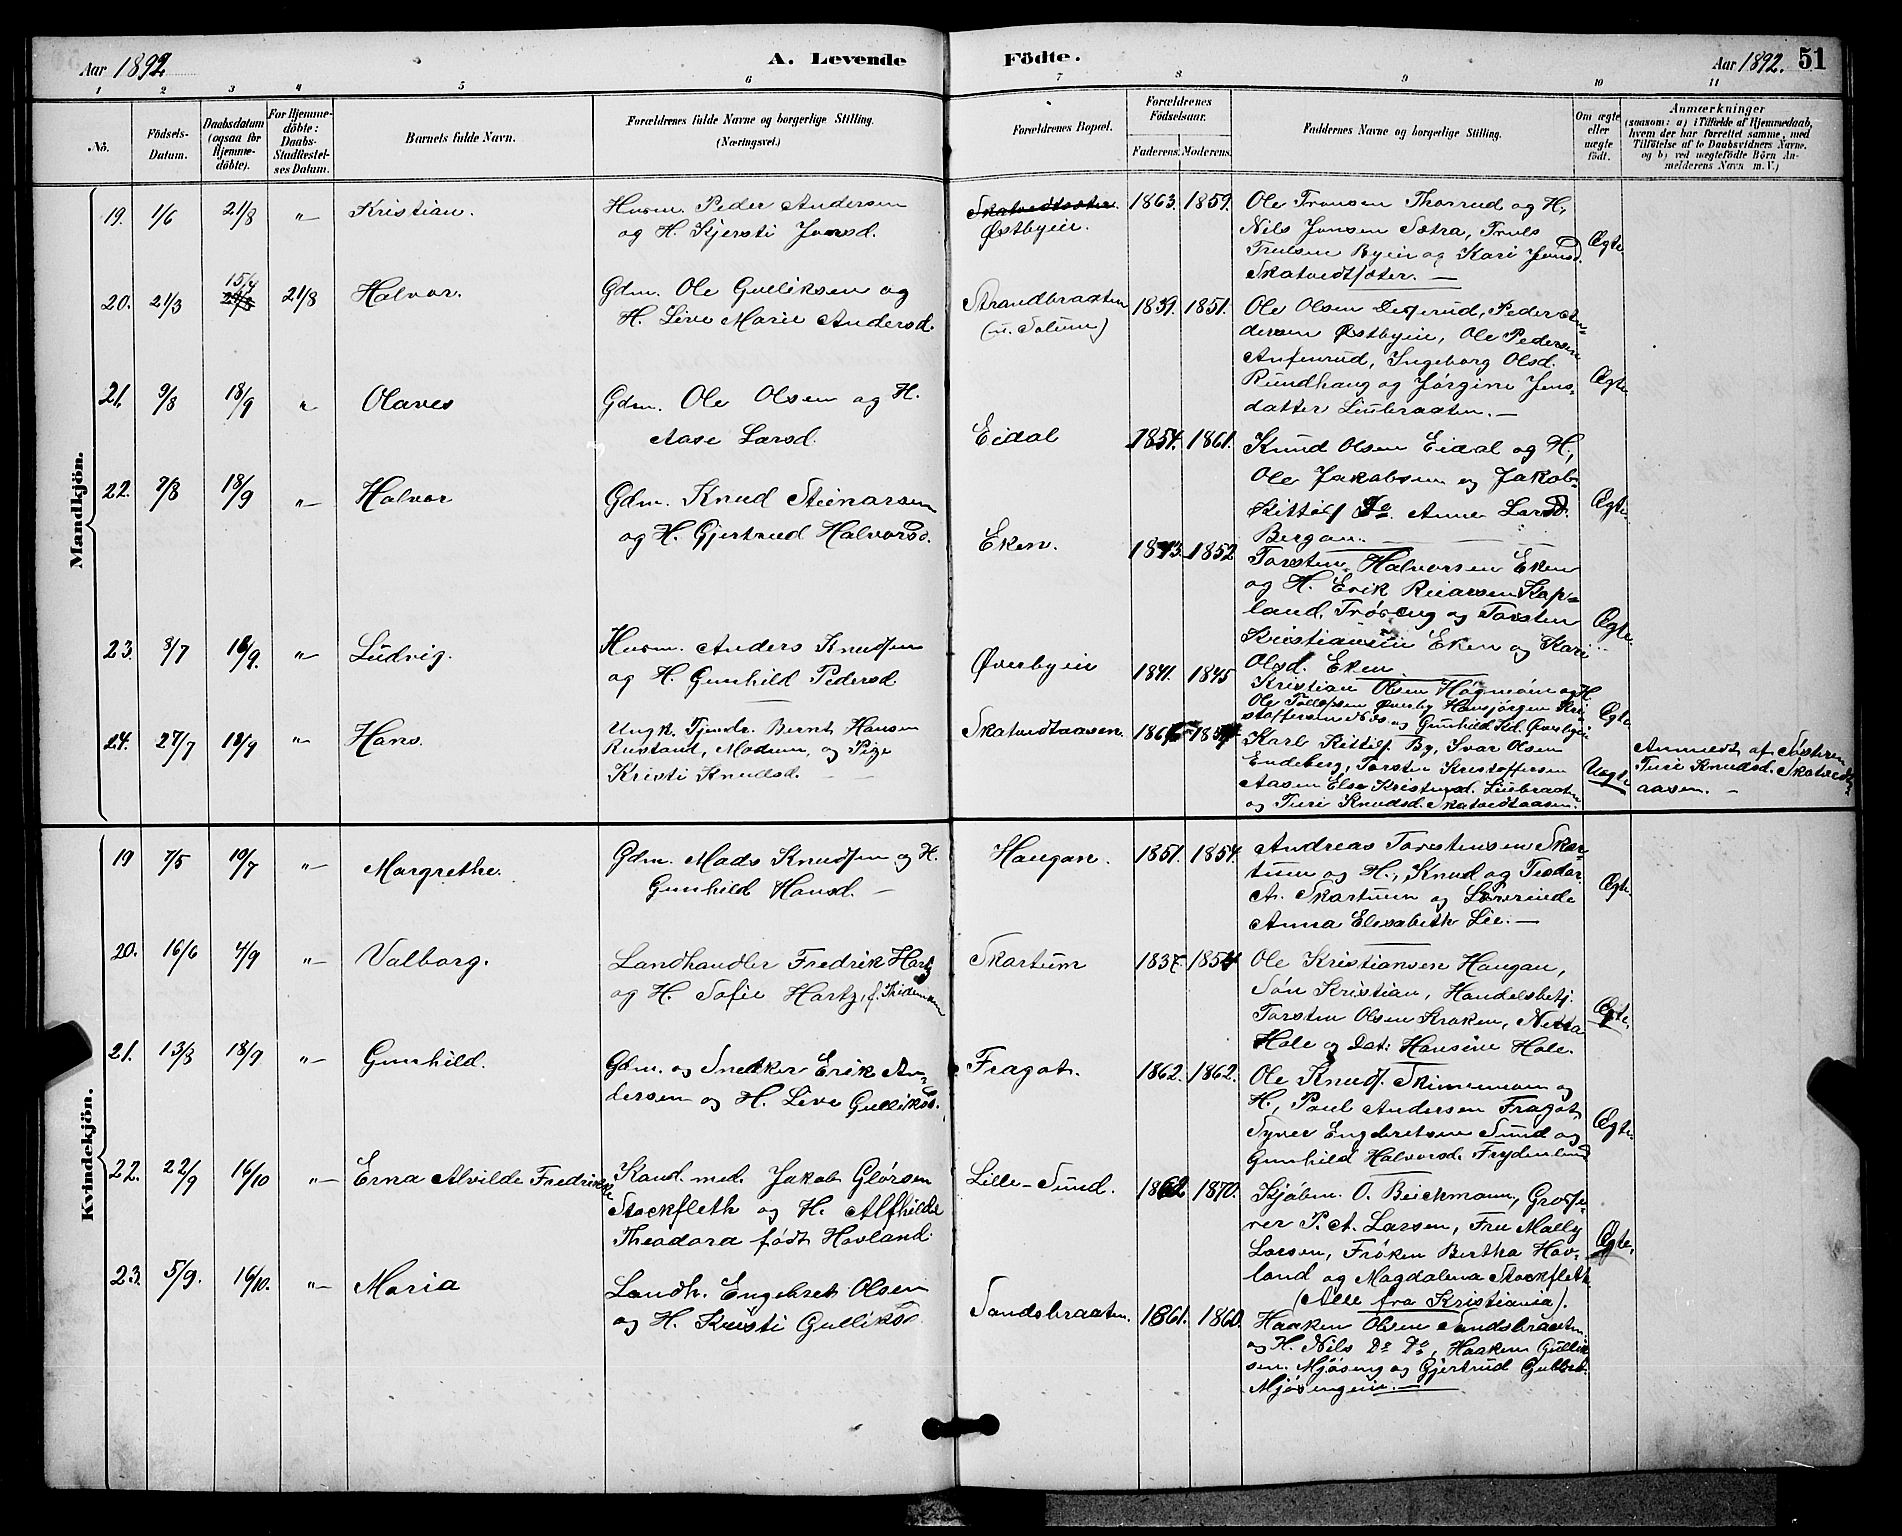 Aar 1892. A. Levende Födte. Aar 1892. 51
1 2 3 4 5 6 7 8 9 10 11
No.
Födsels-
Datum.
Daabsdatum
(ogsaa for
Hjemme-
döbte).
For Hjemme-
döbte:
Daabs-
Stadfæstel-
ses Datum.
Barnets fulde Navn.
Forældrenes fulde Navne og borgerlige Stilling.
(Næringsvei.)
Forældrenes Bopæl.
Forældrenes
Födselsaar.
Faderens. Moderens.
Faddernes Navne og borgerlige Stilling.
Om ægte
eller
uægte
födt.
Anmærkninger
(saasom: a) i Tilfælde af Hjemmedaab,
hvem der har forrettet samme, med
Tilföielse af to Daabsvidners Navne.
og b) ved uægtefödte Börn An-
melderens Navn m. V.)
Mandkjön.
19. 1/6 21/8 " Kristian.
Husm. Peder Andersen
og H. Kjersti Jonsd.
Skatvedtsæter.
Østbyeie.
1863. 1859.
Ole Fransen Thorrud og H,
Nils Jonsen Sætra, Truls
Trulsen Byeie og Kari Jonsd.
Skatvedtsæter.
Ægte
20. 21/3 15/4 21/8 Halvor.
Gdm. Ole Gulliksen og
H. Live Marie Andersd.
Strandbraaten
(u. Solum)
1839. 1851.
Ole Olsen Degerud, Peder An-
dersen Østbyeie, Ole Pedersen
Anfinrud, Ingeborg Olsd.
Rundhaug og Jørgine Jens-
datter Liubraaten.
Ægte
21. 9/8 18/9 " Olaves
Gdm. Ole Olsen og H.
Aase Larsd.
Eidal
1854. 1861.
Knud Olsen Eidal og H,
Ole Jakobsen og Jakob
Kittilf Do. Anne Larsd.
Bergan.
Ægte
22. 7/8 18/9 " Halvor
Gdm. Knud Steinarsen
og H. Gjertrud Halvorsd.
Eken.
1843. 1852
Torsten Halvorsen Eken
og H. Erik Reiarsen Kop-
land, Trøseng og Torsten
Kristiansen Eken og Kari
Olsd. Eken
Ægte
23. 8/7 18/9. " Ludvig.
Husm. Anders Knudsen
og H. Gunhild Pedersd.
Øverbyeie
1841. 1845
Kristian Olsen Hagmoen og H.
Ole Tollefsen Øverby Hansjørgen Kri
stoffersen og Gunhild Kd. Øverbyeie
Ægte
24. 27/7 18/9 " Hans.
Ungk. Tjendr. Bernt Hansen
Rustand, Modum, og Pige
Kristi Knudsd.
Skatvedtaasen.
Karl Kittilf By, Ivar Olsen
Endeberg, Torsten Kristoffersen
Aasen Else Kristensd. Liubraaten
og Turi Knudsd. Skatvedtaasen.
Uægte
Anmeldt af Søsteren
Turi Knudsd. Skatvedt-
aasen.
Kvindekjön.
19 7/5 10/7 " Margrethe.
Gdm. Mads Knudsen og H.
Gunhild Hansd.
Haugan.
1851. 1854.
Andreas Torstensen Skar-
tum og H, Knud og Teodor
A. Skartum og Lærerinde
Anna Elisabeth Lie.
Ægte.
20. 16/6 4/9 " Valborg.
Landhandler Fredrik Hartz
og H. Sofie Hartz, f. Thidemken
Skartum
1837. 1854
Ole Kristiansen Haugan,
Søn Kristian, Handelsbetj.
Torsten Olsen Kroken, Netta
Hole og Dat: Hansine Hole.
Ægte.
21. 13/8 18/9 " Gunhild.
Gdm. og Snedker Erik An-
dersen og H. Live Gulliksd.
Fragot.
1862. 1862.
Ole Knuds. Skinnemoen og
H, Paul Andersen Fragot,
Syver Engebretsen Sund og
Gunhild Halvorsd. Frydenlund
Ægte.
22. 22/9 16/10 " Erna Alvilde Fredrikke
Kand. med. Jakob Glørsen
Stockfleth og H. Alfhilde
Theodora født Hovland.
Lille-Sund.
1862 1870.
Kjøbm. O. Beickmann, Grosse-
rer P. A. Larsen, Fru Mally
Larsen, Frøken Bertha Hov-
land og Magdalena Stockfleth
(Alle fra Kristiania).
Ægte.
23. 5/9. 16/10. " Maria
Landh. Engebret Olsen
og H. Kristi Gulliksd.
Sandsbraaten.
1861. 1860.
Haaken Olsen Sandsbraaten
og H. Nils Do Do, Haaken Gullik
sen Mjøseng og Gjertrud Gulbr.
Mjøsengeie.